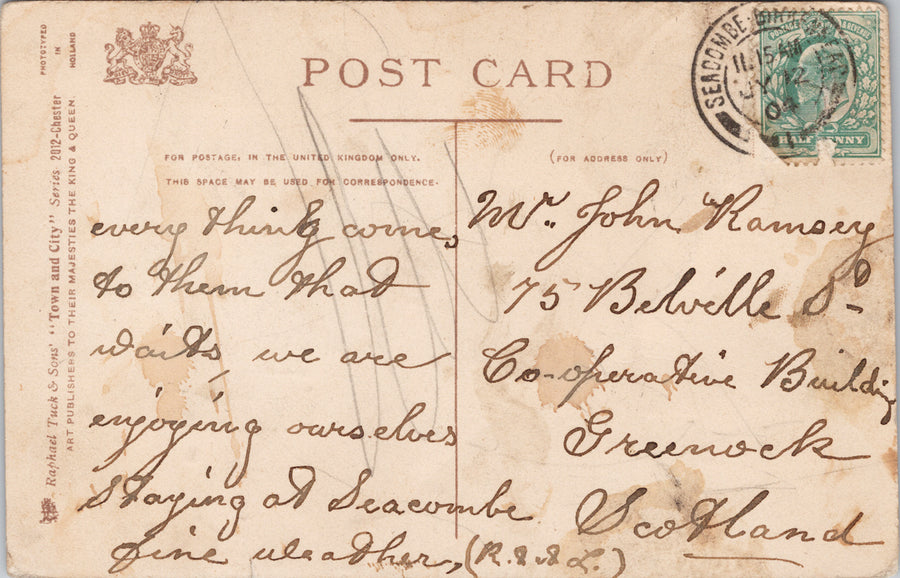 PHOTOTYPED
IN
HOLLAND
Raphael Tuck & Sons' "Town and City" Series 2012-Chester
ART PUBLISHERS TO THEIR MAJESTIES THE KING & QUEEN.
POST CARD
FOR POSTAGE, IN THE UNITED KINGDOM ONLY,
THIS SPACE MAY BE USED FOR CORRESPONDENCE.
(FOR ADDRESS ONLY)
SEACOMBE
11.15AM
JY 12
04
POSTAGE
HALF PENNY
every thing comes
to them that
waits, we are
enjoying ourselves
staying at Seacombe
fine weather, (R. & A L.)
Mr. John Ramsey
75 Belville St
Co-operative Building
Greenock
Scotland